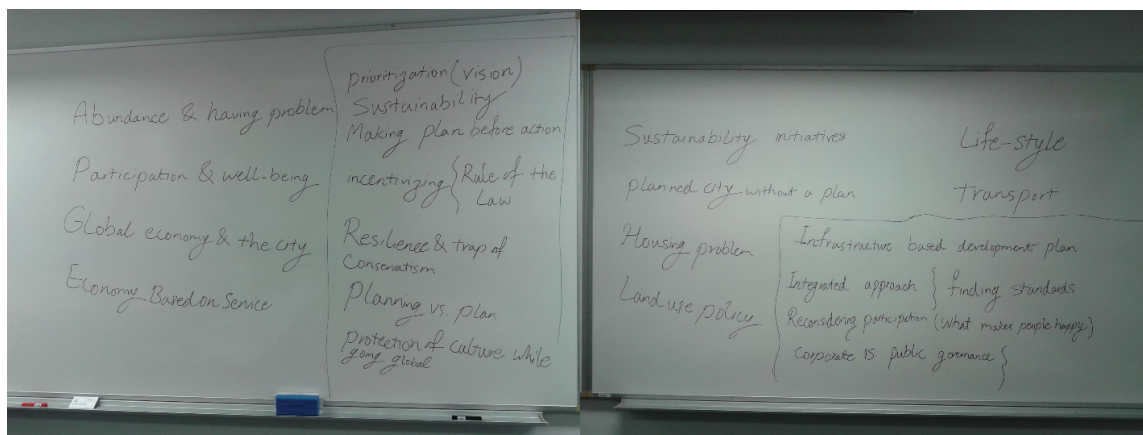 Abundance & having problem
Participation & well-being
Global economy & the city
Economy Based on Service
prioritization (vision)
Sustainability
Making plan before action
incentivizing { Rule of the
Law
Resilience & trap of
conservatism
Planning vs. plan
protection of culture while
going global
Sustainability initiatives
planned city without a plan
Housing problem
Land use policy
Life-style
transport
Infrastructure based development plan
Integrated approach } finding standards
Reconsidering participation (what makes people happy)
corporate vs public governance }